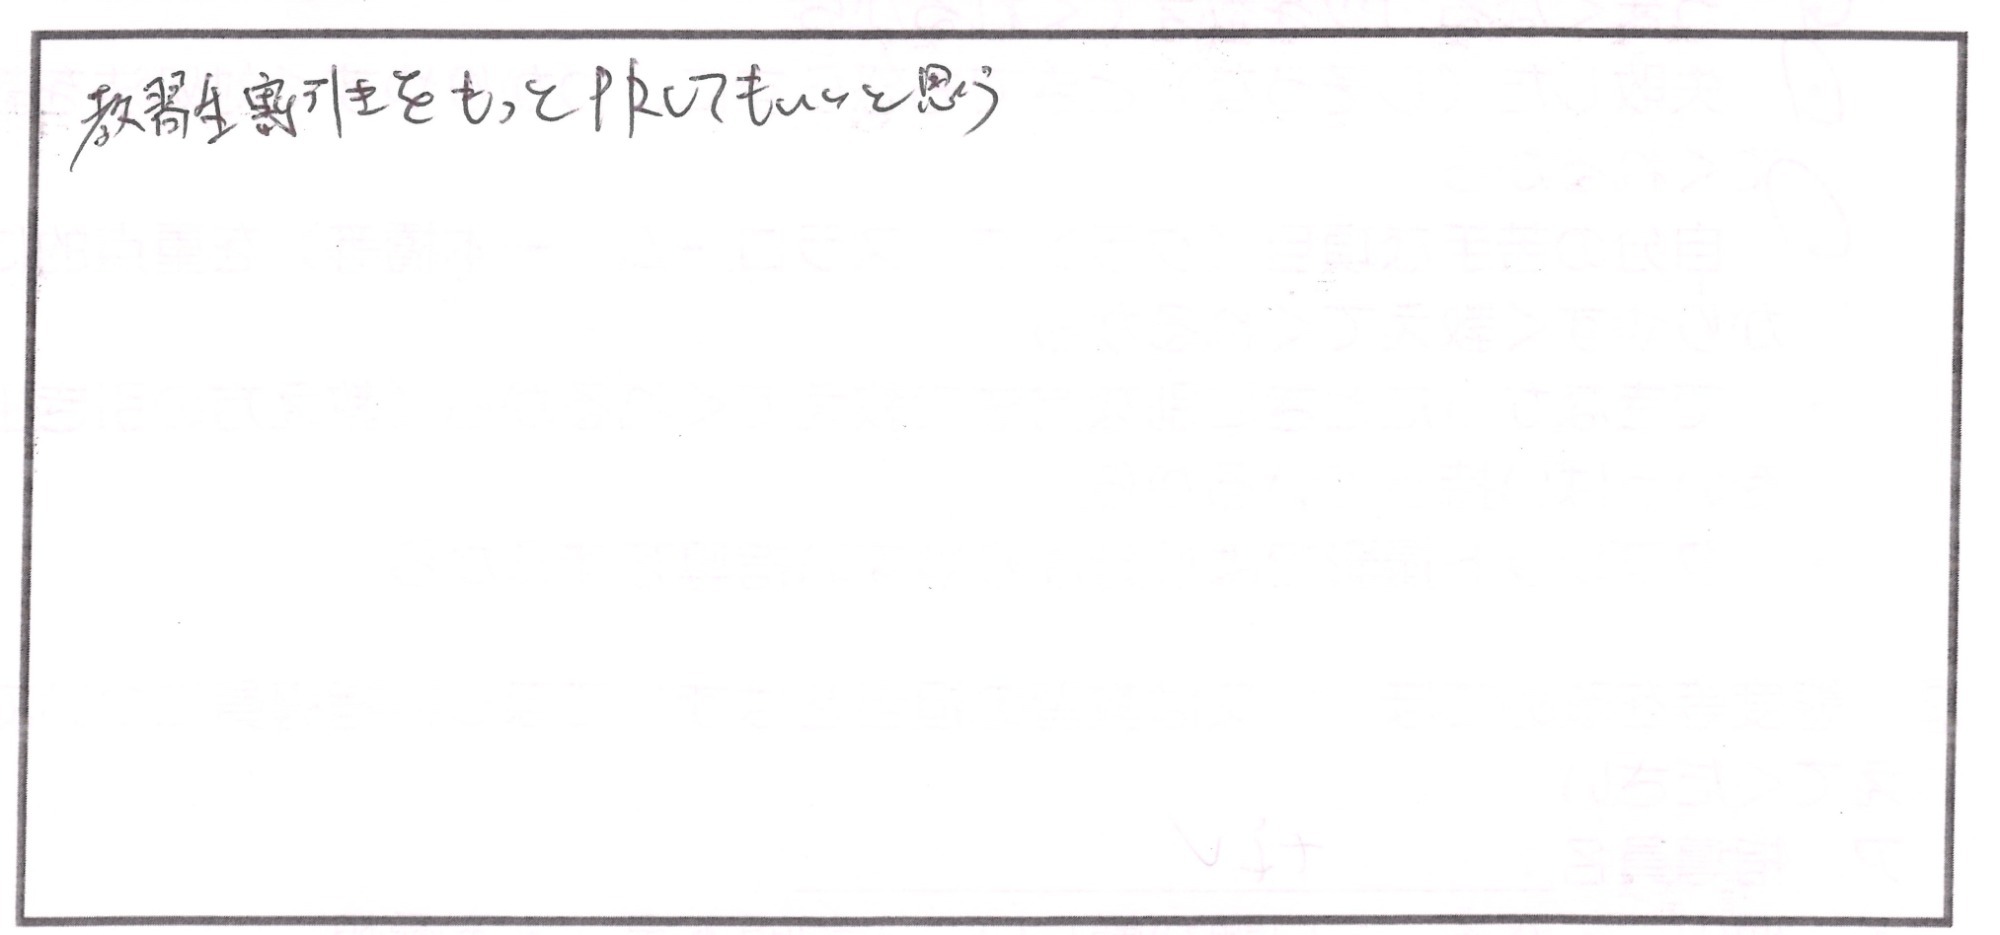 教習生割引きをもっとPRしてもいいと思う